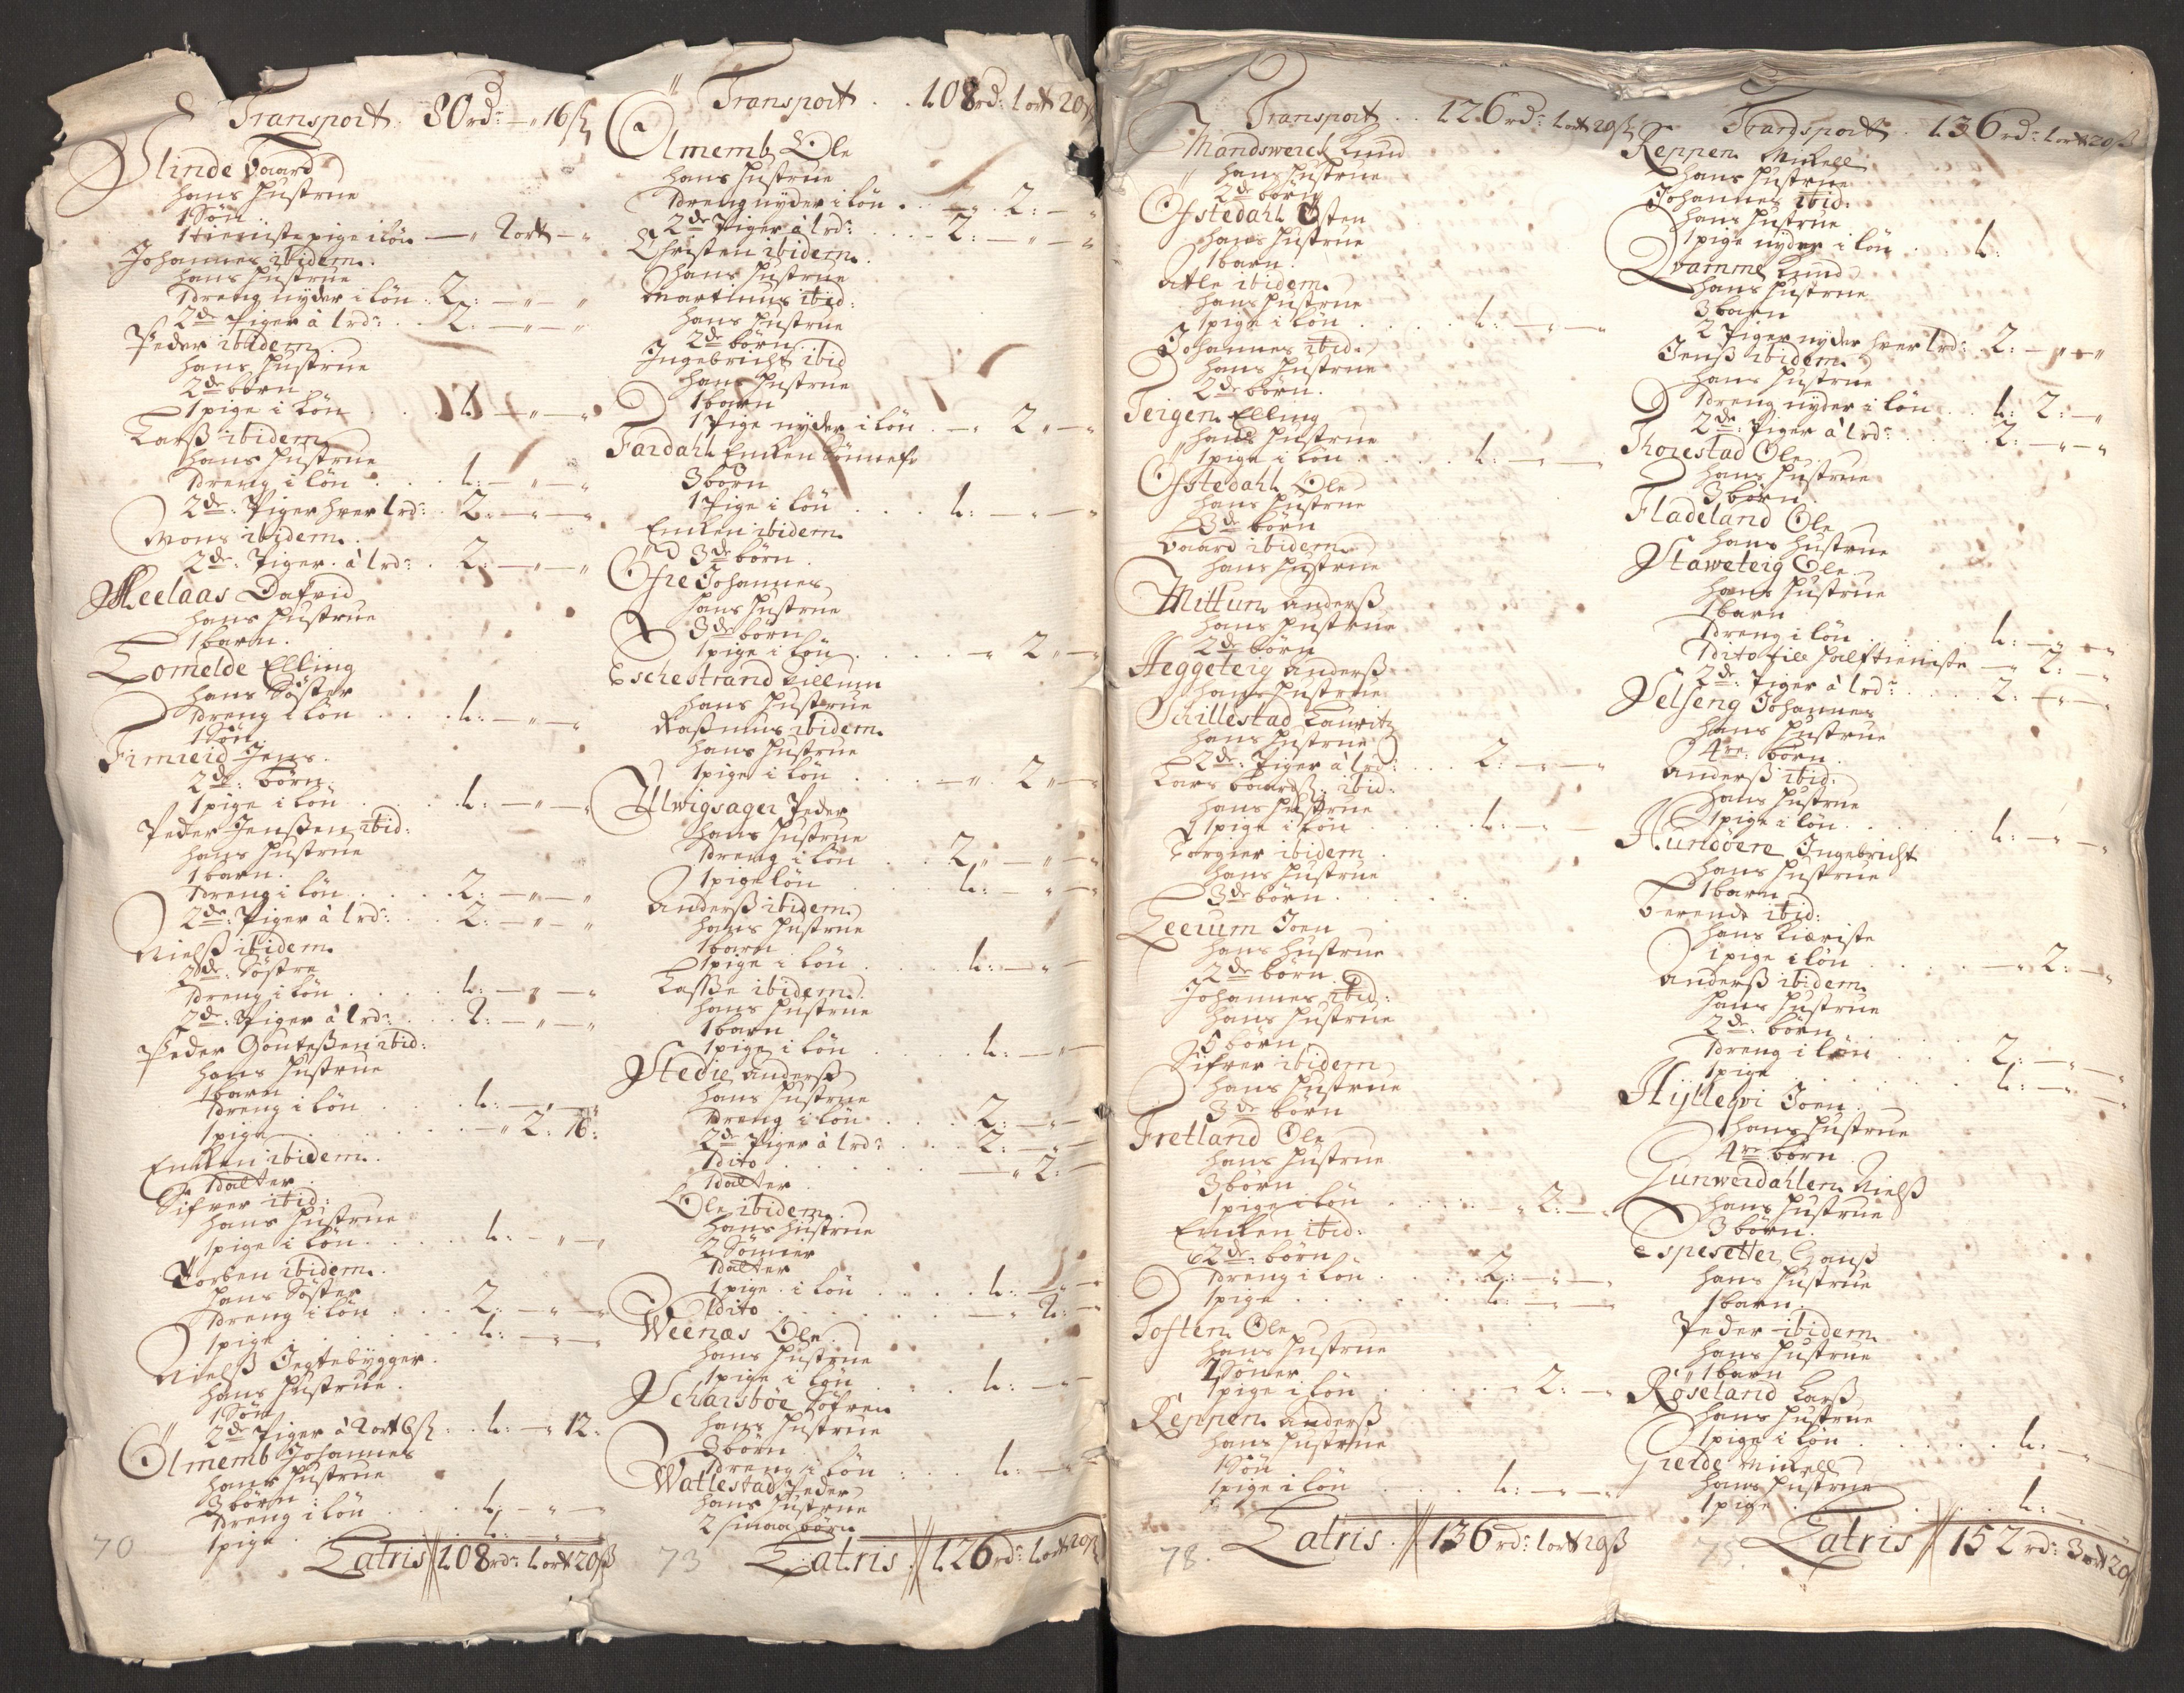 Transport. 80 rdr — " 16 ß
Slinde Baard
hans Hustrue
1 Søn
1 tieniste pige i løn — " 2 ort — "
Johannes ibidem.
hans Hustrue
1 dreng nyder i løn . 2: — " — "
2de Piger à 1 rdr . . 2: — " — "
Peder ibidem
hans Hustrue
2de børn
1 pige i Løn . . . 1: — " — "
Larß ibidem
hans Hustrue
1 dreng i løn . . . 1: — " — "
2de: Piger hver 1 rdr . 2: — " — "
Mons ibidem.
2de: Piger à 1 rdr . 2: — " — "
Meelaas Dafvid
hans Hustrue
1 barn.
Lomelde Elling
hans Søster
1 dreng i løn . . . 1: — " — "
1 Søn
Fimreid Jens.
2de: børn
1 pige i løn . . . 1: — " — "
Peder Jenßen ibid:
hans Hustrue
1 barn.
1 dreng i løn . . . 2: — " — "
2de: Piger à 1 rdr . . 2: — " — "
Nielß ibidem
2de: Søstre
1 dreng i løn . . . 1: — " — "
2de: Piger à 1 rdr . . 2: — " — "
Peder Gouteßen ibid:
hans Hustrue
1 barn
1 dreng i løn . . . 1: — " — "
1 pige . . . — " 2: 16:
Encken ibidem.
1 datter.
Sifver ibid:
hans Hustrue
1 pige i løn . . . 1: — " — "
Torben ibidem.
hans Søster
1 dreng i løn . . . 2: — " — "
1 pige . . . 1: — " — "
Nielß Jegtebygger.
hans Hustrue.
1 Søn
2de Piger à 2 ort 6 ß . 1: — " 12:
Ølmemb Johannes
hans Hustrue
3 børn
1 dreng i løn . . . 1: — " — "
1 pige . . . 1: — " — "
70
Latris 108 rdr: 1 ort 20 ß
Transport . . 108 rd: 1 ort 20 ß
Ølmemb Ole
hans Hustrue
1 dreng nyder i løn . . — " 2: — "
2de Piger à 1 rdr: . . 2: — " — "
Christen ibidem.
hans Hustrue
Martinus ibid:
hans Hustrue
2de børn
Ingebricht ibid
hans Hustrue
1 barn
1 Pige nyder i løn . — " 2 " — "
Fardahl Encken Sønnefe
3 børn
1 Pige i løn . . . 1: — " — "
Encken ibidem
3de børn.
Øfre Johannes
hans Hustrue
3de børn
1 pige i løn . . . " 2 " — "
Eschestrand Villum
hans Hustrue
Raßmus ibidem.
hans Hustrue
1 pige i løn . . . — " 2 " — "
Ulwigsager Peder
hans Hustrue
1 dreng i løn . . . 2 " — " — "
1 pige løn . . . 1: — " — "
Anderß ibidem
hans Hustrue
1 barn
1 pige i løn . . . 1: — " —
Laßße ibidem.
hans Hustrue
1 barn
1 pige i løn . . . 1: — " —
Stedie Anderß
hans Hustrue
1 dreng i løn . . . 2: — " —
2de Piger à 1 rdr: . . 2: — " —
1 dito . . . — " 2: —
1 datter.
Ole ibidem
hans Hustrue
2 Sønner
1 datter
1 pige i løn . . . 1: — " —
1 dito . . . — " 2: —
Weenæs Ole
hans Hustrue
1 pige i løn . . . 1: — " —
Scharsbøe Søfren
hans Hustrue
3 børn
1 dreng i løn . . . 1: — " —
Watlestad Peder
hans Hustrue
2 smaa børn
73
Latris. 126 rdr: 1 ort 20 ß
Transport . . 126 rdr: 1 ort 20 ß
Mandswerck Knud
hans Hustrue
2de børn
Ofstedahl Østen
hans Hustrue
1 barn.
Atle ibidem.
hans Hustrue
1 pige i løn . . . 1: — " — "
Johannes ibid:
hans Hustrue
2de børn.
Teigen Elling
hans Hustrue
1 pige i løn . . . 1: — " — "
Ofstedahl Ole
hans Hustrue
3de børn
Baard ibidem
hans Hustrue
Mittun Anderß
hans Hustrue
2de børn
Heggeteig Anderß
hans Hustrue
Schillestad Lauritz
hans Hustrue
2de: Piger à 1 rdr: . . 2: — " — "
Lars Baardß: ibid:
hans Hustrue
1 pige i løn . . . 1: — " — "
Torgier ibidem.
hans Hustrue
3de børn.
Leerum Joen
hans Hustrue
2de børn.
Johannes ibid:
hans Hustrue
5 børn
Sifver ibidem
hans Hustrue
3de børn
Fretland Ole
hans Hustrue
3 børn
1 pige i løn . . . " 2: — "
Encken ibid:
2de: børn
1 dreng i løn . . . 2: — " —
1 pige . . . 1: — " —
Toften Ole
hans Hustrue
2 Søner
1 pige i løn . . . — " 2: — "
Reppen Anderß
hans Hustrue
1 Søn
1 pige i løn . . . 1: — " — "
78
Latris. 136 rdr: 1 ort 20 ß
Transport . 136 rdr: 1 ort 20 ß
Reppen Mickell
hans Hustrue
Johannes ibid:
hans Hustrue
1 pige nyder i løn . 1:
Qvamme Knud
hans Hustrue
3 barn
2 Piger nyder hver 1 rdr: 2: — " — "
Jenß ibidem
hans Hustrue
1 dreng nyder i løn . . 1: 2: — "
2de: Piger à 1 rdr: . . 2: — " — "
Thorestad Ole
hans Hustrue
3 børn.
Fladeland Ole
hans Hustrue
Staweteig Ole
hans Hustrue
1 barn
1 dreng i løn . . . 1: — " — "
1 dito till halftieniste — " 2: — "
2de: Piger à 1 rdr: . . 2: — " — "
Selseng Johannes
hans Hustrue
4re: børn.
Anderß ibid:
hans Hustrue
1 pige i løn . . . 1: — " — "
Hundøere Ingebricht
hans Hustrue
1 barn
Berendt ibid:
hans Kiæriste
1 pige i løn . . . — " 2: — "
Anderß ibidem
hans Hustrue
2de: børn
1 dreng i løn . . . 2: — " — "
1 pige . . . 1: — " — "
Hylleqvi Joen
hans Hustrue
4re børn
Gunwerdahlen Nielß
hans Hustrue
3 børn.
Espesetter Gauß
hans Hustrue
1 barn.
Peder ibidem
hans Hustrue
1 barn
Røseland Larß
hans Hustrue
1 pige i løn . . . 1: — " — "
Gierde Mickell
hans Hustrue
1 pige . . . 1: — " —
75
Latris 152 rdr: 3 ort 20 ß